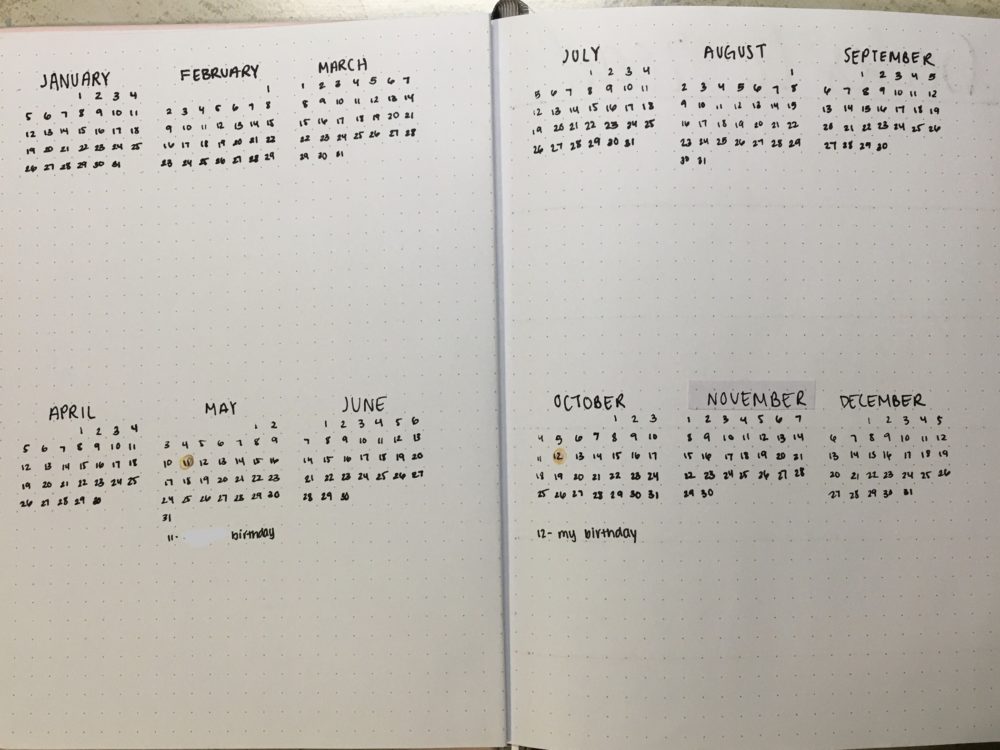 JANUARY
1 2 3 4
5 6 7 8 9 10 11
12 13 14 15 16 17 18
19 20 21 22 23 24 25
26 27 28 29 30 31
FEBRUARY
1
2 3 4 5 6 7 8
9 10 11 12 13 14 15
16 17 18 19 20 21 22
23 24 25 26 27 28 29
MARCH
1 2 3 4 5 6 7
8 9 10 11 12 13 14
15 16 17 18 19 20 21
22 23 24 25 26 27 28
29 30 31
APRIL
1 2 3 4
5 6 7 8 9 10 11
12 13 14 15 16 17 18
19 20 21 22 23 24 25
26 27 28 29 30
MAY
1 2
3 4 5 6 7 8 9
10 11 12 13 14 15 16
17 18 19 20 21 22 23
24 25 26 27 28 29 30
31
11- birthday
JUNE
1 2 3 4 5 6
7 8 9 10 11 12 13
14 15 16 17 18 19 20
21 22 23 24 25 26 27
28 29 30
JULY
1 2 3 4
5 6 7 8 9 10 11
12 13 14 15 16 17 18
19 20 21 22 23 24 25
26 27 28 29 30 31
AUGUST
1
2 3 4 5 6 7 8
9 10 11 12 13 14 15
16 17 18 19 20 21 22
23 24 25 26 27 28 29
30 31
SEPTEMBER
1 2 3 4 5
6 7 8 9 10 11 12
13 14 15 16 17 18 19
20 21 22 23 24 25 26
27 28 29 30
OCTOBER
1 2 3
4 5 6 7 8 9 10
11 12 13 14 15 16 17
18 19 20 21 22 23 24
25 26 27 28 29 30 31
12- my birthday
NOVEMBER
1 2 3 4 5 6 7
8 9 10 11 12 13 14
15 16 17 18 19 20 21
22 23 24 25 26 27 28
29 30
DECEMBER
1 2 3 4 5
6 7 8 9 10 11 12
13 14 15 16 17 18 19
20 21 22 23 24 25 26
27 28 29 30 31